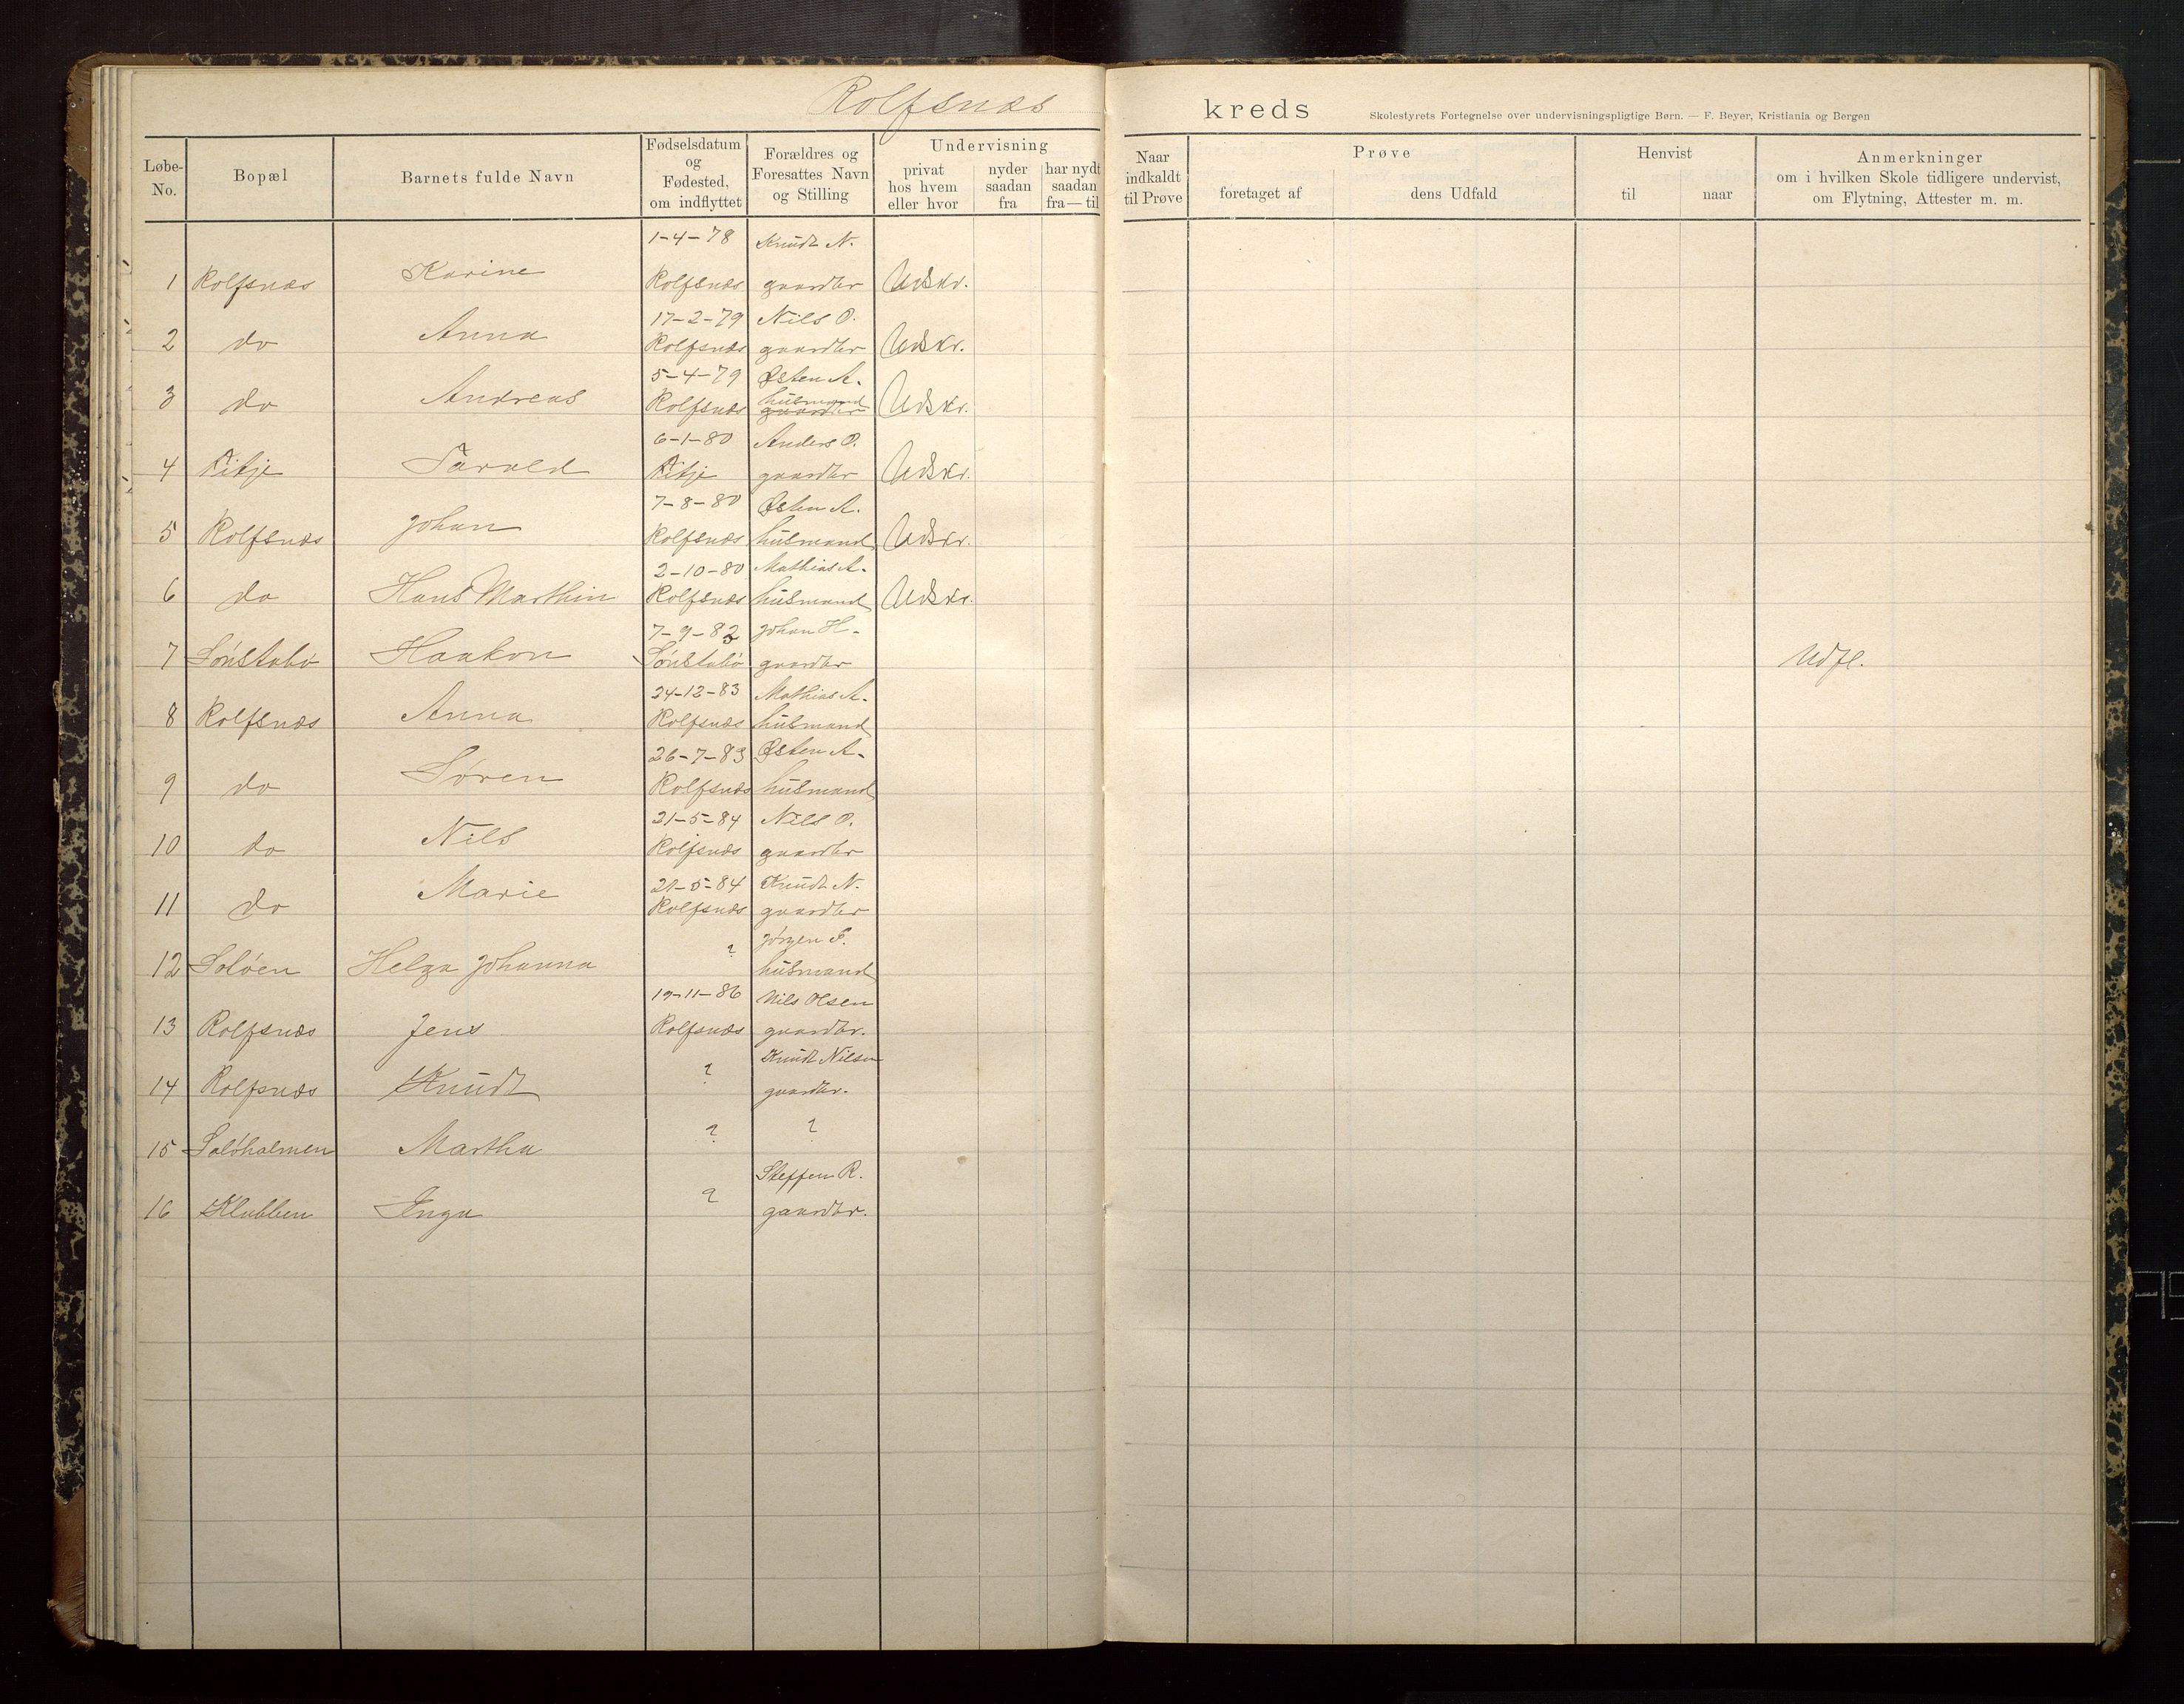 Rolfsnæs kreds Skolestyrets Fortegnelse over undervisningspligtige Børn. — F. Beyer, Kristiania og Bergen
Løbe-No. Bopæl Barnets fulde Navn Fødselsdatum og Fødested, om indflyttet Forældres og Foresattes Navn og Stilling Undervisning privat hos hvem eller hvor nyder saadan fra har nydt saadan fra—til Naar indkaldt til Prøve Prøve foretaget af dens Udfald Henvist til naar Anmerkninger om i hvilken Skole tidligere undervist, om Flytning, Attester m. m.
1-4-78 Knudt N.
1 Rolfsnæs Karine Rolfsnæs gaardbr Udskr.
17-2-79 Nils O.
2 do Anna Rolfsnæs gaardbr Udskr.
5-4-79 Østen A.
3 do Andreas Rolfsnæs husmand gaardbr Udskr.
6-1-80 Anders O.
4 Vikje Tarald Vikje gaardbr Udskr.
7-8-80 Østen A.
5 Rolfsnæs Johan Rolfsnæs husmand Udskr.
2-10-80 Mathias A.
6 do Hans Marthin Rolfsnæs husmand Udskr.
7-9-82 Johan H.
7 Sønstabø Haakon Sønstabø gaardbr Udfl.
24-12-83 Mathias A.
8 Rolfsnæs Anna Rolfsnæs husmand
26-7-83 Østen A.
9 do Søren Rolfsnæs husmand
21-5-84 Nils O.
10 do Nils Rolfsnæs gaardbr
21-5-84 Knudt N.
11 do Marie Rolfsnæs gaardbr
? Jørgen
12 Soløen Helga Johanna husmand
19-11-86 Nils Olsen
13 Rolfsnæs Jens Rolfsnæs gaardbr.
? Knudt Nilsen
14 Rolfsnæs Knudt gaardbr.
? ?
15 Soløholmen Martha
? Steffen R.
16 Klubben Inga gaardbr.